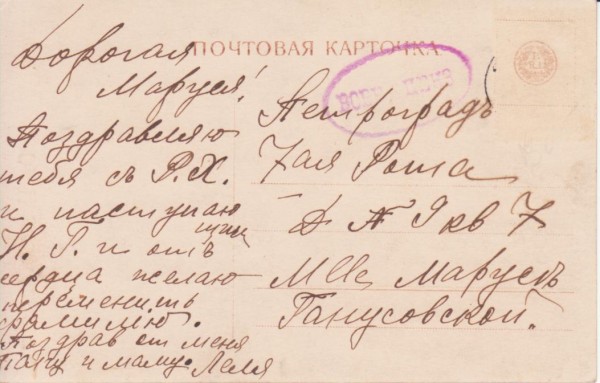 ПОЧТОВАЯ КАРТОЧКА
Дорогая
Маруся!
Поздравляю
тебя съ Р.Х.
и наступаю
щим
Н. Г. и отъ
сердца желаю
переменить
фамилию.
Поздрав от меня
Папу и маму. Леля
Петроградъ
7ая Рота
Д N 9 кв 7
Mlle Марусѣ
Ганусовской.